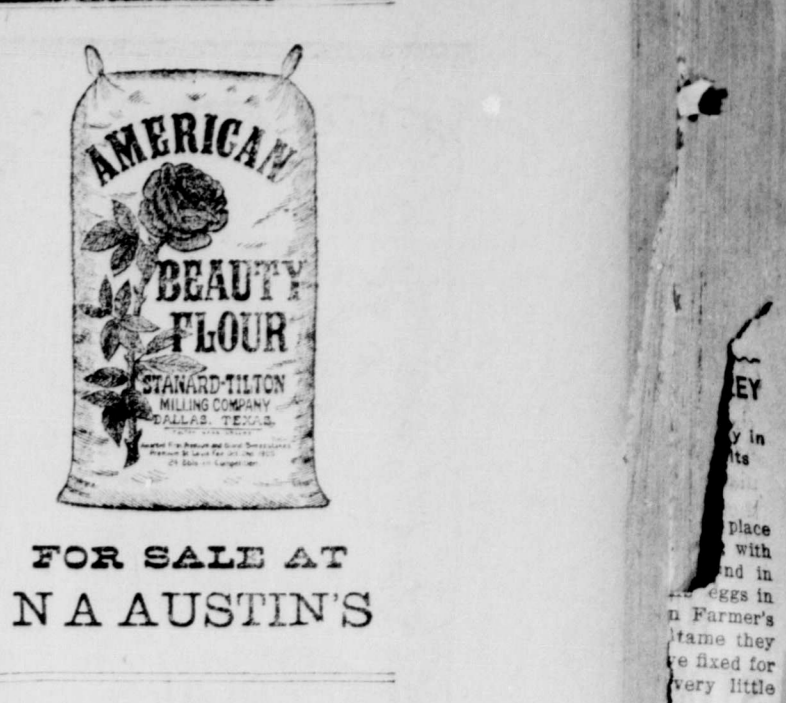 AMERICAN
BEAUTY
FLOUR
STANARD-TILTON
MILLING COMPANY
DALLAS, TEXAS
FOR SALE AT
N A AUSTIN'S
EY
y in
its
place
with
nd in
eggs in
n Farmer's
tame they
e fixed for
very little